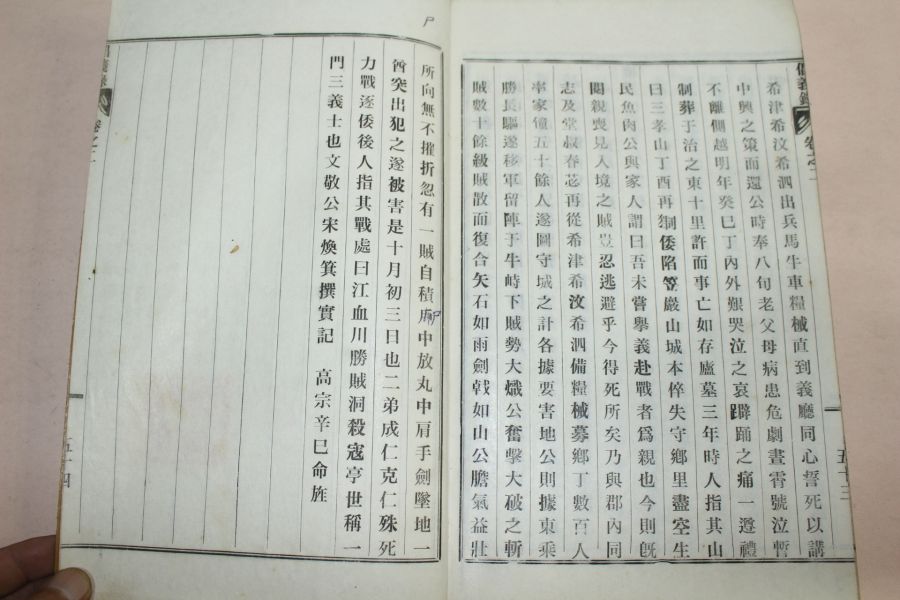 希津希汶希泗出兵馬牛車糧械直到義廳同心誓死以講
中興之策而還公時奉八旬老父母病患危劇晝宵號泣暫
不離側越明年癸巳丁內外艱哭泣之哀躃踊之痛一遵禮
制葬于治之東十里許而事亡如存廬墓三年時人指其山
曰三孝山丁酉再猘倭陷笠巖山城本倅失守鄉里盡空生
民魚肉公與家人謂曰吾未嘗擧義赴戰者爲親也今則旣
闋親喪見入境之賊豈忍逃避乎今得死所矣乃與郡內同
志及堂叔春芯再從希津希汶希泗備糧械募鄉丁數百人
率家僮五十餘人遂圖守城之計各據要害地公則據東乘
勝長驅遂移軍留陣于牛峙下賊勢大熾公奮擊大破之斬
賊數十餘級賊散而復合矢石如雨劍戟如山公膽氣益壯
卷之二
五十三
尸
所向無不摧折忽有一賊自積屍中放丸中肩手劍墜地一
酋突出犯之遂被害是十月初三日也二弟成仁克仁殊死
力戰逐倭後人指其戰處曰江血川勝賊洞殺寇亭世稱一
門三義士也文敬公宋煥箕撰實記 高宗辛巳命旌
卷之二
五十四